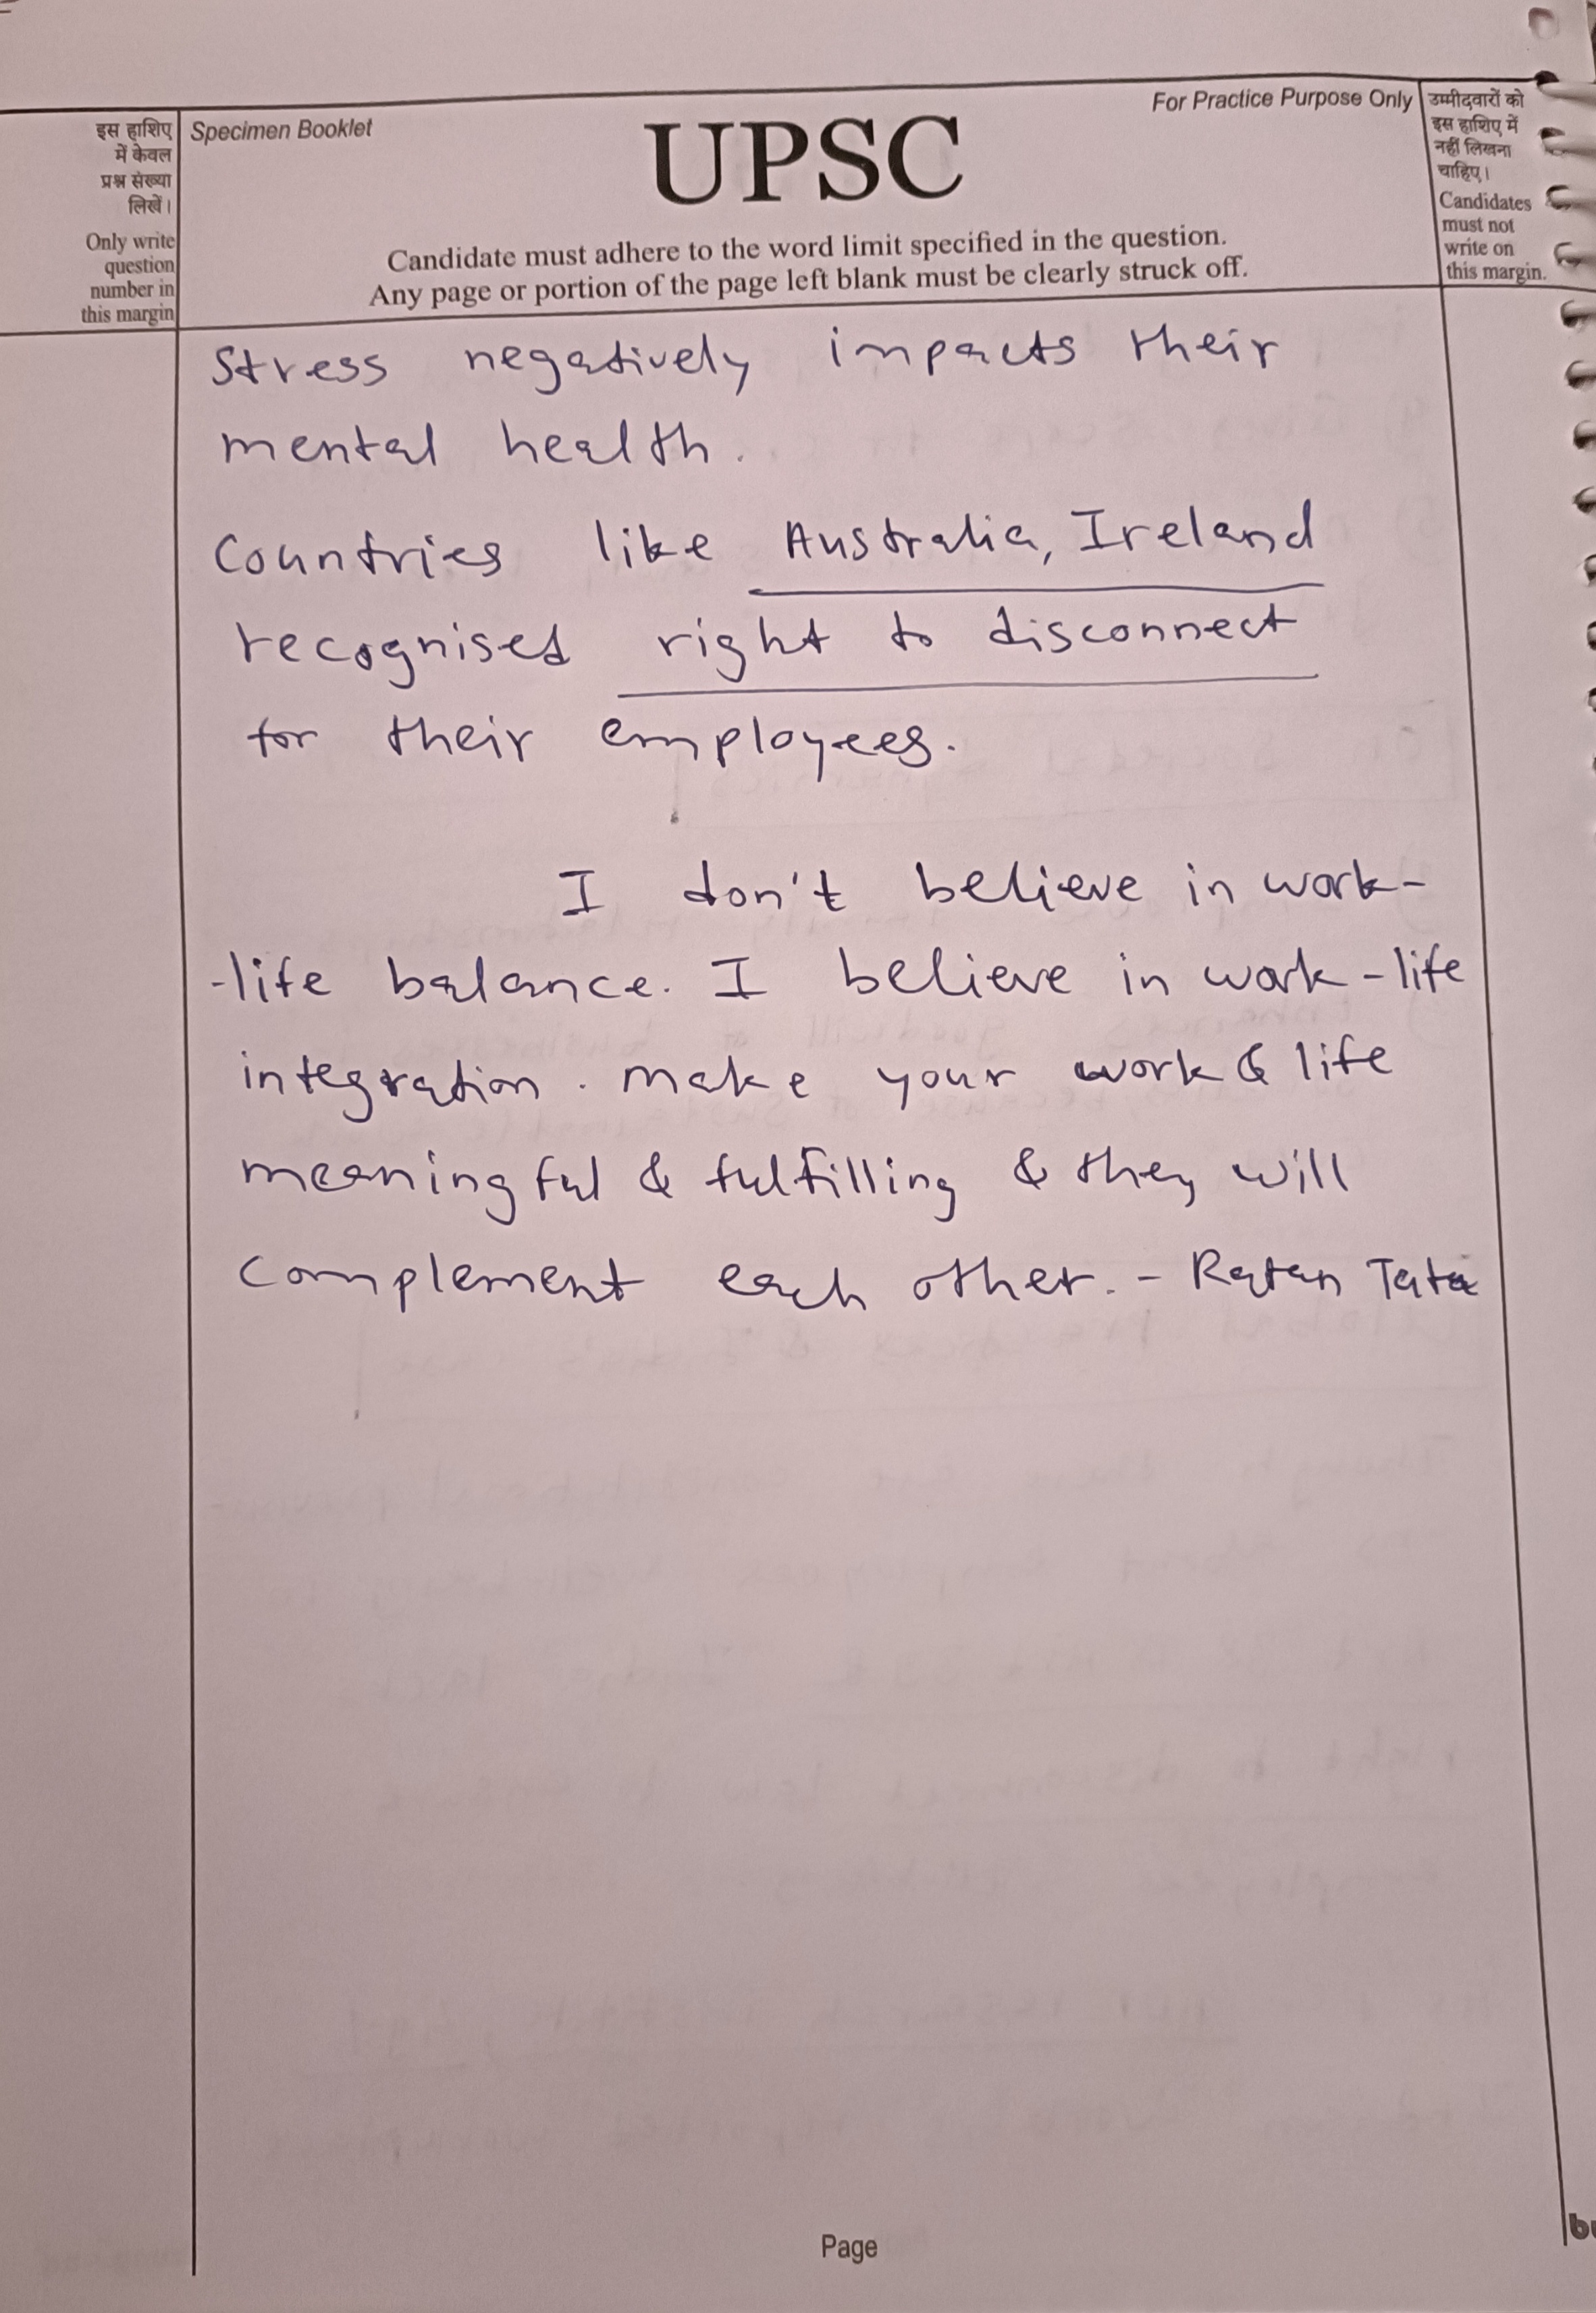 इस हाशिए
में केवल
प्रश्न संख्या
लिखें।
Only write
question
number in
this margin
Specimen Booklet
UPSC
For Practice Purpose Only
Candidate must adhere to the word limit specified in the question.
Any page or portion of the page left blank must be clearly struck off.
उम्मीदवारों को
इस हाशिए में
नहीं लिखना
चाहिए।
Candidates
must not
write on
this margin.
Stress negatively impacts their
mental health.
Countries like Australia, Ireland
recognised right to disconnect
for their employees.
I don't believe in work-
-life balance. I believe in work-life
integration. make your work & life
meaningful & fulfilling & they will
complement each other. - Ratan Tata
Page